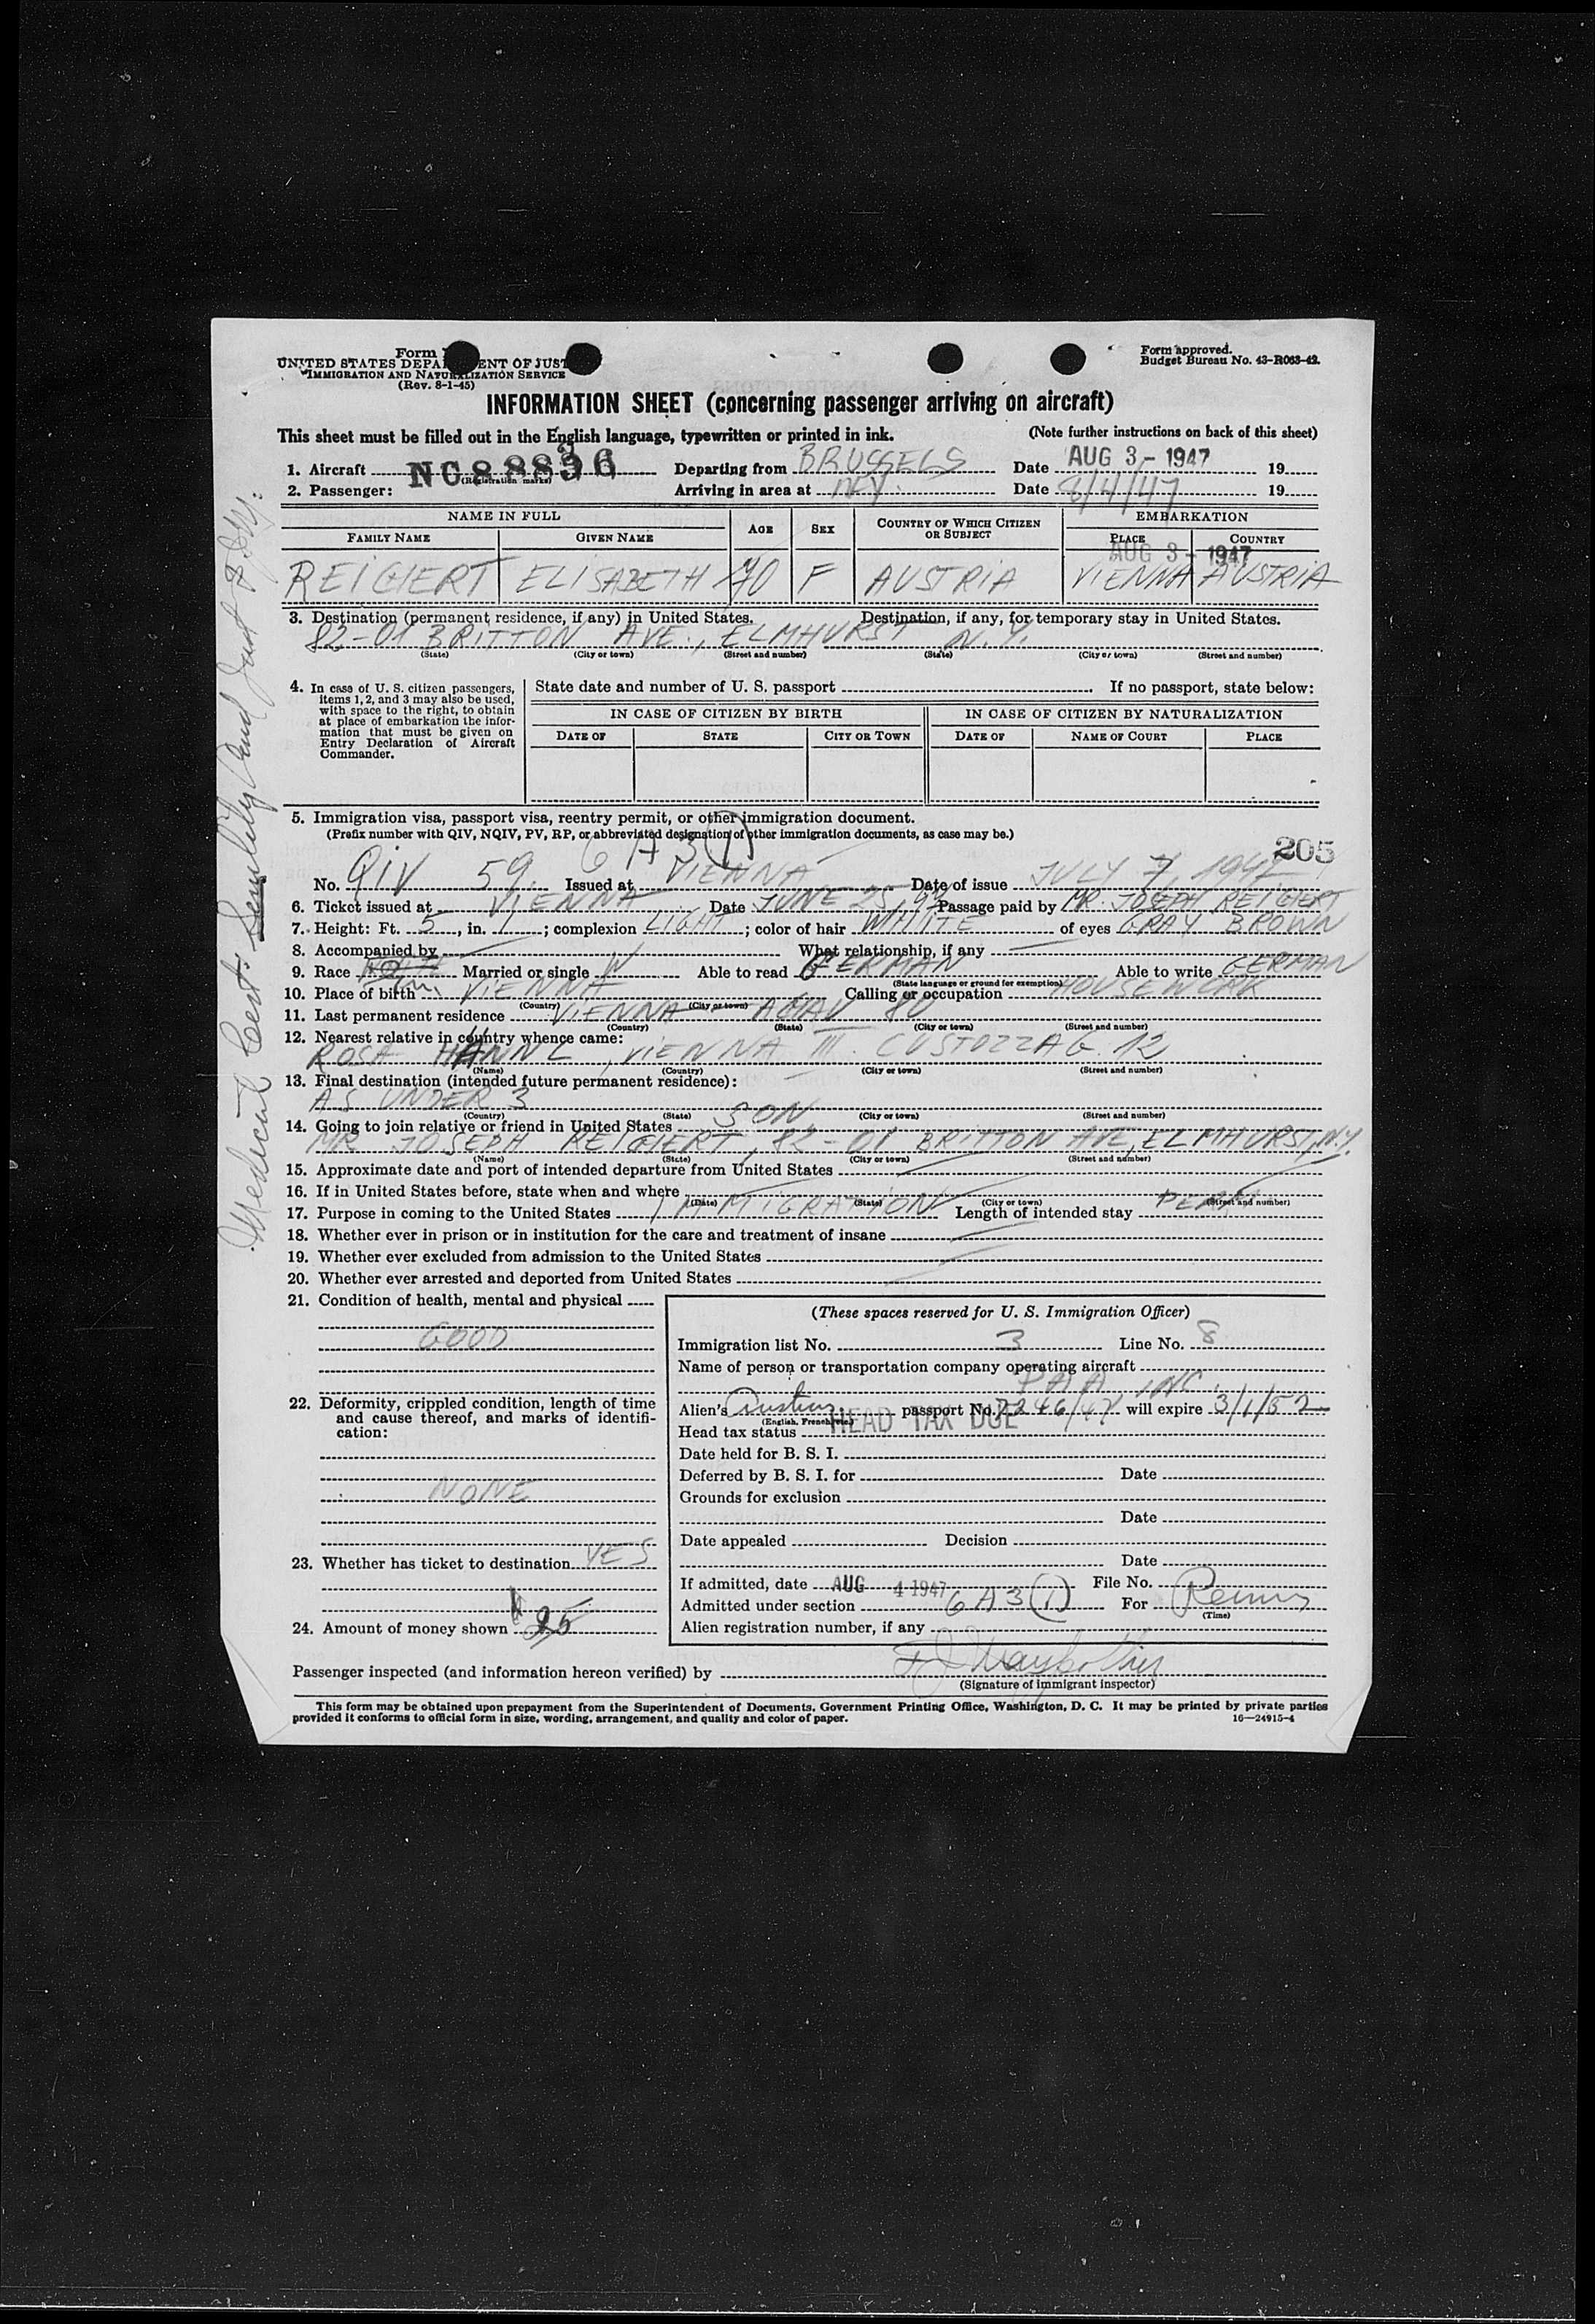 Form
UNITED STATES DEPA ENT OF JUST
IMMIGRATION AND NATURALIZATION SERVICE
(Rev. 8-1-45)
Form approved.
Budget Bureau No. 43-R063-42.
INFORMATION SHEET (concerning passenger arriving on aircraft)
This sheet must be filled out in the English language, typewritten or printed in ink. (Note further instructions on back of this sheet)
1. Aircraft NC88836 Departing from BRUSSELS Date AUG 3 - 1947 19
(Registration marks)
2. Passenger: Arriving in area at Date 8/4/47 19
NAME IN FULL AGE SEX COUNTRY OF WHICH CITIZEN OR SUBJECT EMBARKATION
FAMILY NAME GIVEN NAME PLACE COUNTRY
AUG 3 - 1947
REIGIERT ELISABETH 70 F AUSTRIA VIENNA AUSTRIA
3. Destination (permanent residence, if any) in United States. Destination, if any, for temporary stay in United States.
82-01 BRITTON AVE., ELMHURST N.Y.
(State) (City or town) (Street and number) (State) (City or town) (Street and number)
4. In case of U. S. citizen passengers, items 1, 2, and 3 may also be used, with space to the right, to obtain at place of embarkation the information that must be given on Entry Declaration of Aircraft Commander.
State date and number of U. S. passport If no passport, state below:
IN CASE OF CITIZEN BY BIRTH IN CASE OF CITIZEN BY NATURALIZATION
DATE OF STATE CITY OR TOWN DATE OF NAME OF COURT PLACE
5. Immigration visa, passport visa, reentry permit, or other immigration document.
(Prefix number with QIV, NQIV, PV, RP, or abbreviated designation of other immigration documents, as case may be.)
6 A 3 (1) 205
No. QIV 59. Issued at VIENNA Date of issue JULY 7, 1947
6. Ticket issued at VIENNA Date JUNE 25, 47 Passage paid by MR. JOSEPH REIGIERT
7. Height: Ft. 5, in. 1; complexion LIGHT; color of hair WHITE of eyes GRAY BROWN
8. Accompanied by What relationship, if any
9. Race Married or single W Able to read GERMAN Able to write GERMAN
(State language or ground for exemption)
10. Place of birth VIENNA Calling or occupation HOUSEWORK
(Country) (City or town)
11. Last permanent residence VIENNA 80
(Country) (State) (City or town) (Street and number)
12. Nearest relative in country whence came:
ROSA HANNL, VIENNA III. CUSTOZZAG. 12
(Name) (Country) (City or town) (Street and number)
13. Final destination (intended future permanent residence):
AS UNDER 3
(Country) (State) (City or town) (Street and number)
14. Going to join relative or friend in United States SON
MR JOSEPH REIGIERT, 82-01 BRITTON AVE, ELMHURST, N.Y.
(Name) (State) (City or town) (Street and number)
15. Approximate date and port of intended departure from United States
16. If in United States before, state when and where
(Date) (State) (City or town) (Street and number)
17. Purpose in coming to the United States IMMIGRATION Length of intended stay PERM
18. Whether ever in prison or in institution for the care and treatment of insane
19. Whether ever excluded from admission to the United States
20. Whether ever arrested and deported from United States
21. Condition of health, mental and physical
GOOD
22. Deformity, crippled condition, length of time and cause thereof, and marks of identification:
NONE
23. Whether has ticket to destination YES
24. Amount of money shown 25
(These spaces reserved for U. S. Immigration Officer)
Immigration list No. 3 Line No. 8
Name of person or transportation company operating aircraft
PAA INC.
Alien's Austrian passport No. 7246/47 will expire 3/1/52
(English, French, etc.)
Head tax status HEAD TAX DUE
Date held for B. S. I.
Deferred by B. S. I. for Date
Grounds for exclusion
Date
Date appealed Decision
Date
If admitted, date AUG 4 1947 File No.
Admitted under section 6 A 3 (1) For
(Time)
Alien registration number, if any
Passenger inspected (and information hereon verified) by
(Signature of immigrant inspector)
This form may be obtained upon prepayment from the Superintendent of Documents, Government Printing Office, Washington, D. C. It may be printed by private parties
provided it conforms to official form in size, wording, arrangement, and quality and color of paper. 16—24915-4
Medical Cert: Senility